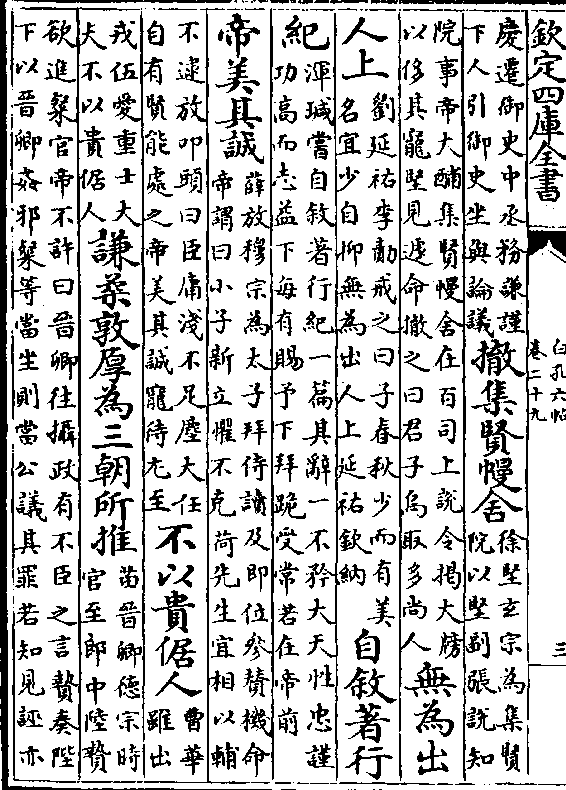 欽定四庫全書
白孔六帖
卷二十九
三
慶遷御史中丞務謙謹
下人引御史坐與論議
撤集賢幔舍
徐堅玄宗為集賢
院以堅副張說知
院事帝大酺集賢幔舍在百司上說令揭大牓
以侈其寵堅見遽命撤之曰君子烏取多尚人
無為出
人上
劉延祐李勣戒之曰子春秋少而有美
名宜少自抑無為出人上延祐欽納
自敘著行
紀
渾瑊嘗自敘著行紀一篇其辭一不矜大天性忠謹
功高而志益下每有賜予下拜跪受常若在帝前
帝美其誠
薛放穆宗為太子拜侍讀及即位參贊機命
帝謂曰小子新立懼不克荷先生宜相以輔
不逮放叩頭曰臣庸淺不足塵大任
自有賢能處之帝美其誠寵待尤至
不以貴倨人
曹華
雖出
戎伍愛重士大
夫不以貴倨人
謙柔敦厚為三朝所推
苗晉卿德宗時
官至郎中陸贄
欲進粲官帝不許曰晉卿往攝政有不臣之言贄奏陛
下以晉卿姦邪粲等當坐則當公議其罪若知見誣亦